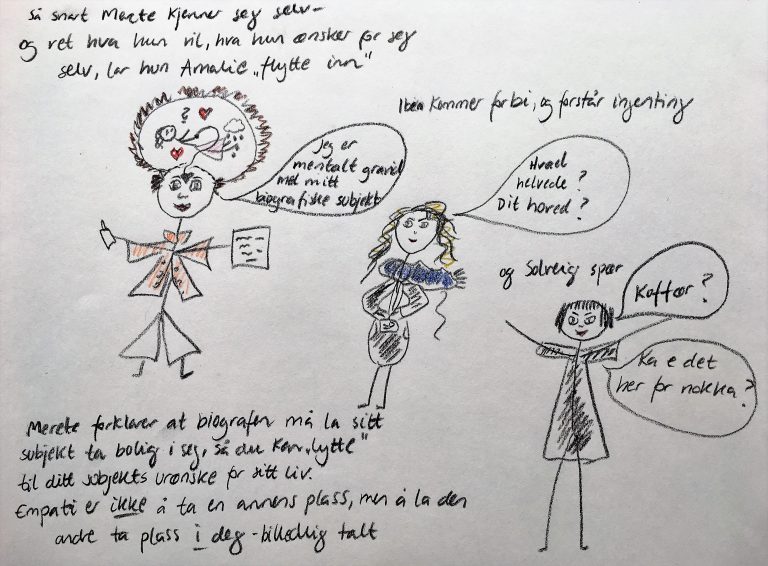 så snart Merete kjenner seg selv –
og vet hva hun vil, hva hun ønsker for seg
selv, lar hun Amalie „flytte inn"
Iben kommer forbi, og forstår ingenting
?
Jeg er
mentalt gravid
med mitt
biografiske subjekt
Hvad
helvede?
Dit hoved?
og Solveig spør
Koffør?
Ka e det
her for nokka?
Merete forklarer at biografen må la sitt
subjekt ta bolig i seg, så du kan „lytte"
til ditt subjekts urønske for sitt liv.
Empati er ikke å ta en annens plass, men å la den
andre ta plass i deg - billedlig talt